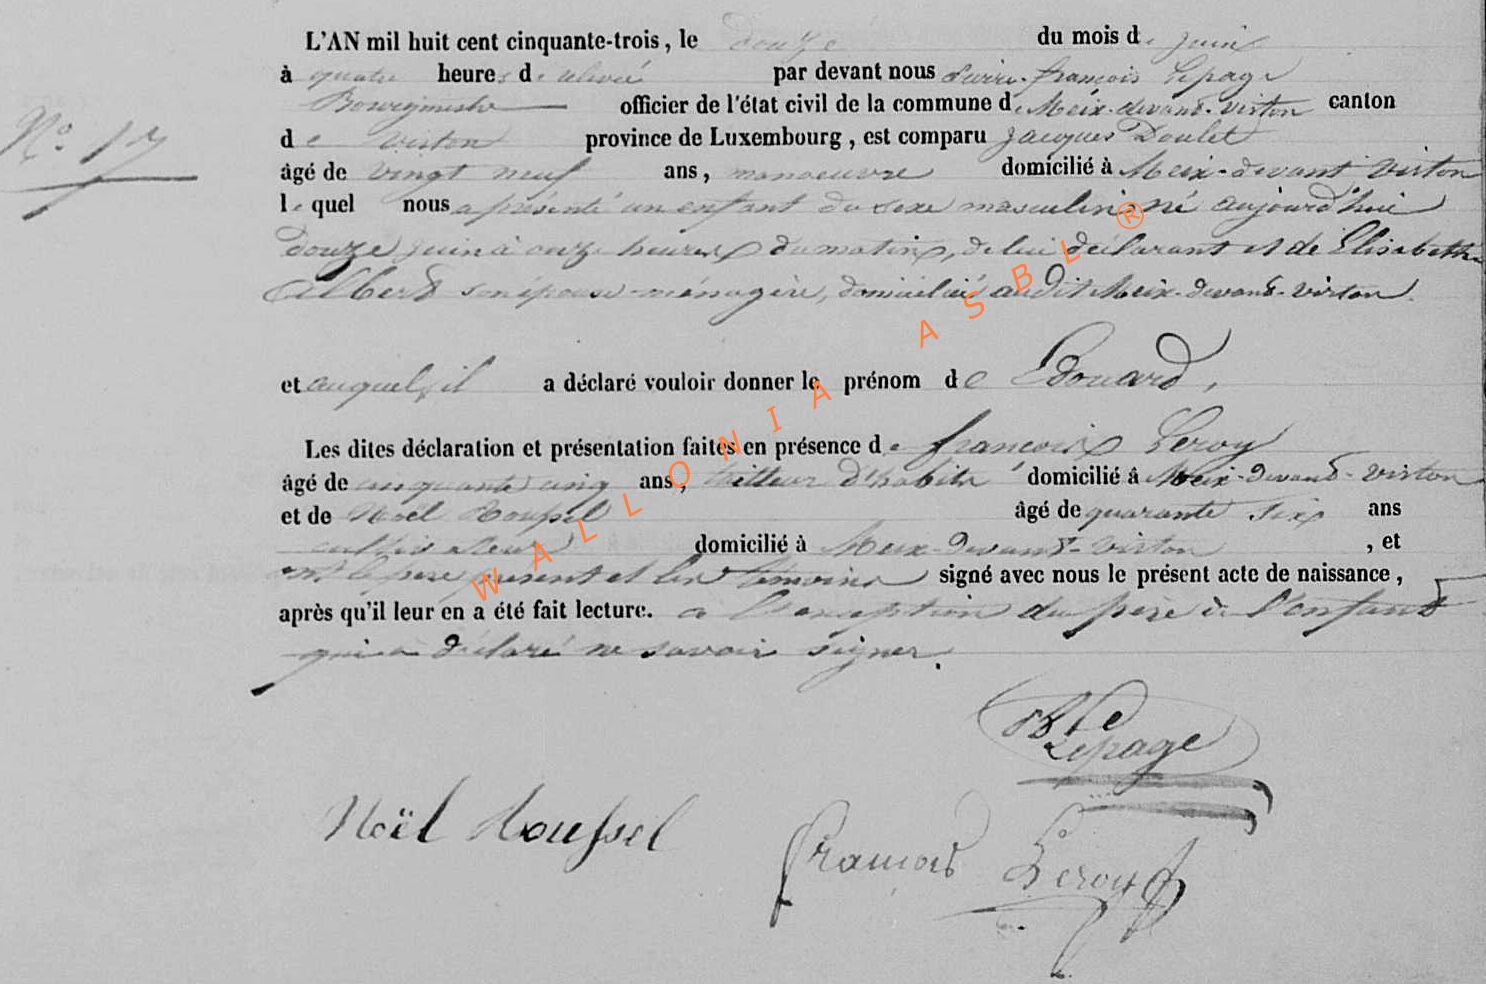 L'AN mil huit cent cinquante-trois, le douze du mois de juin
à quatre heures de relevée par devant nous Pierre-françois Lepage
Bourgmestre officier de l'état civil de la commune de Meix-devant-virton canton
N° 17
de virton province de Luxembourg, est comparu Jacques Doulet
âgé de vingt neuf ans, manoeuvre domicilié à Meix-devant virton
lequel nous a présenté un enfant du sexe masculin né aujourd'hui
douze juin à onze heures du matin, de lui déclarant et de Elisabeth
Albert son épouse ménagère, domiciliée audit Meix-devant-virton.
et auquel il a déclaré vouloir donner le prénom de Edouard,
Les dites déclaration et présentation faites en présence de françois Leroy
âgé de cinquante cinq ans, tailleur d'habits domicilié â Meix-devant-virton
et de Noël Roussel âgé de quarante six ans
cultivateur domicilié à Meix-devant-virton, et
ont le père présent et les témoins signé avec nous le présent acte de naissance,
après qu'il leur en a été fait lecture. à l'exception du père de l'enfant
qui a déclaré ne savoir signer.
Lepage
Noël Roussel
françois Leroy
WALLONIA ASBL ®